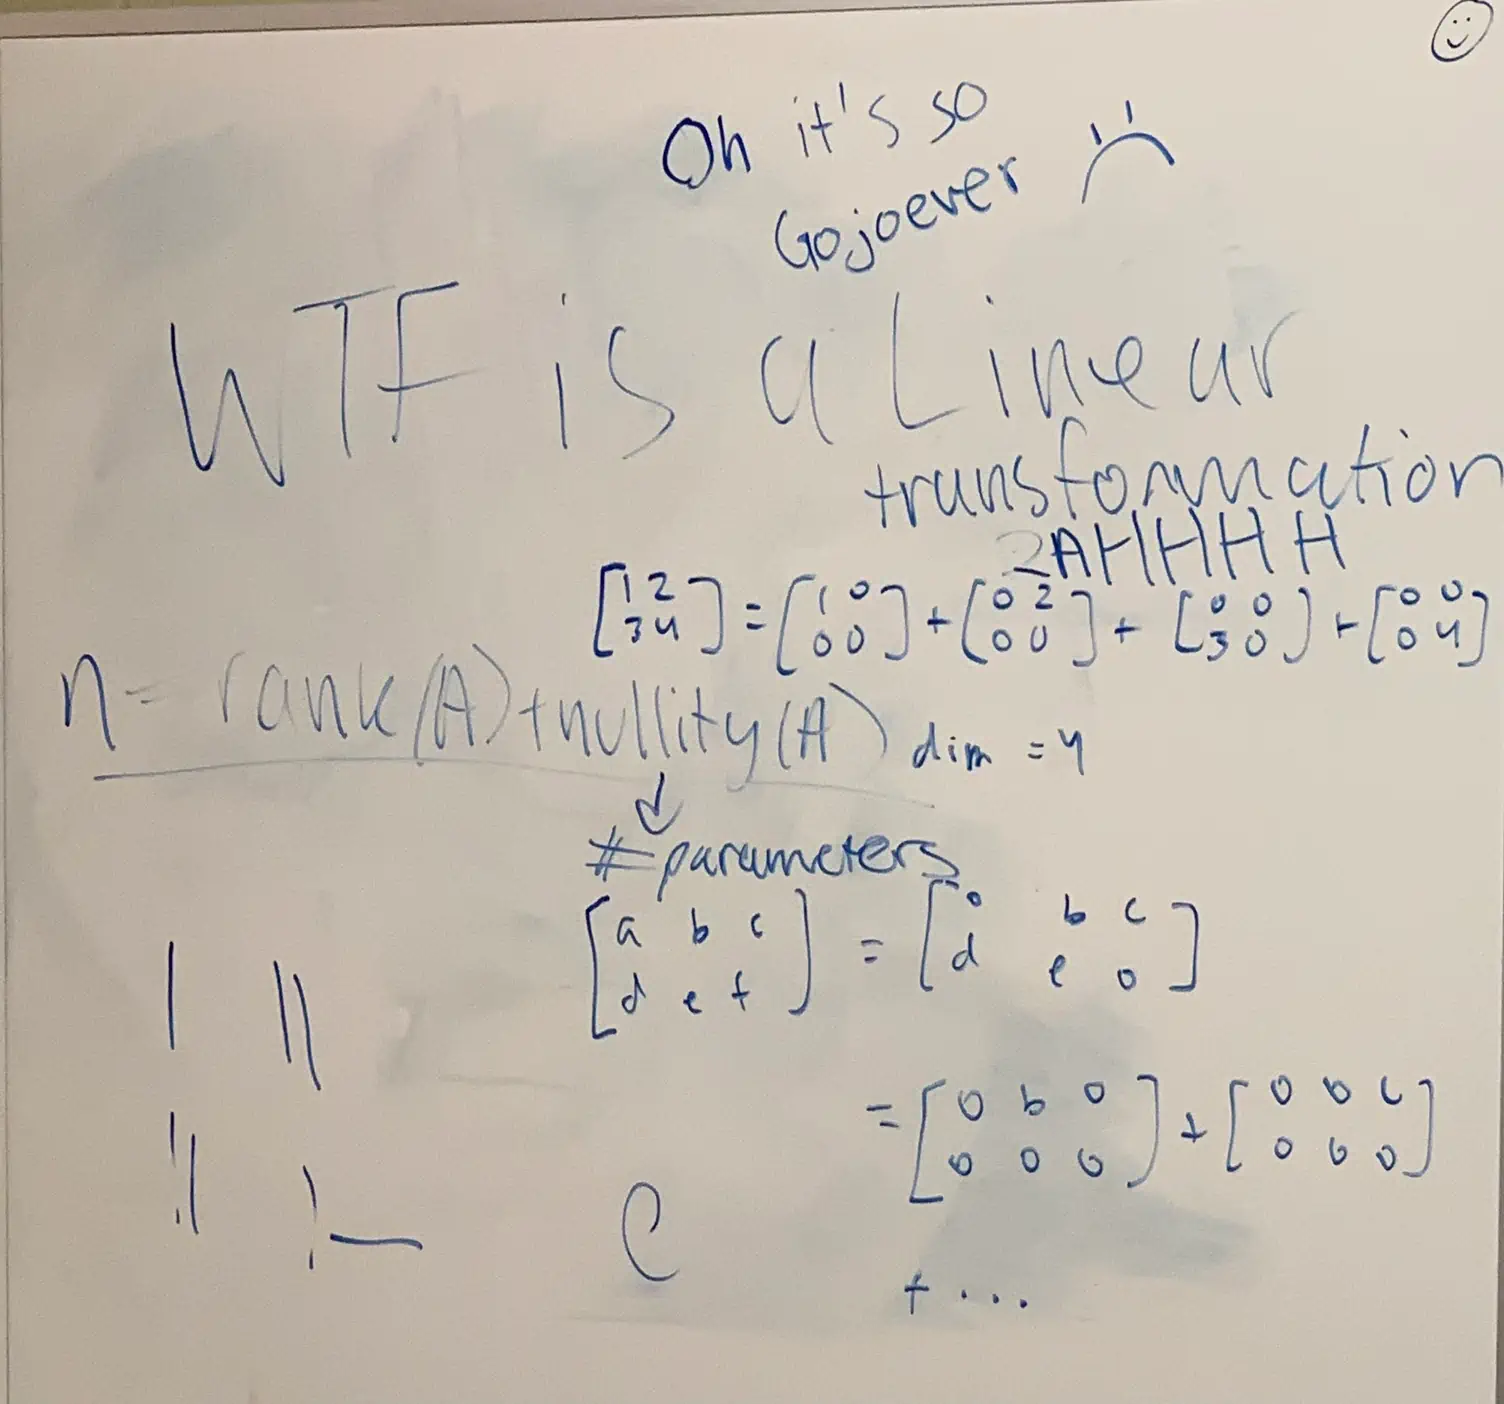 Oh it's so
Gojoever
WTF is a Linear
transformation
2AHHHH
[1 2 = [1 0 + [0 2 + [0 0 + [0 0
3 4] 0 0] 0 0] 3 0] 0 4]
n = rank(A)+nullity(A) dim = 4
↓
# parameters
[a b c = [0 b c
d e f] d e 0]
= [0 b 0 + [0 0 c
0 0 0] 0 0 0]
+ ...